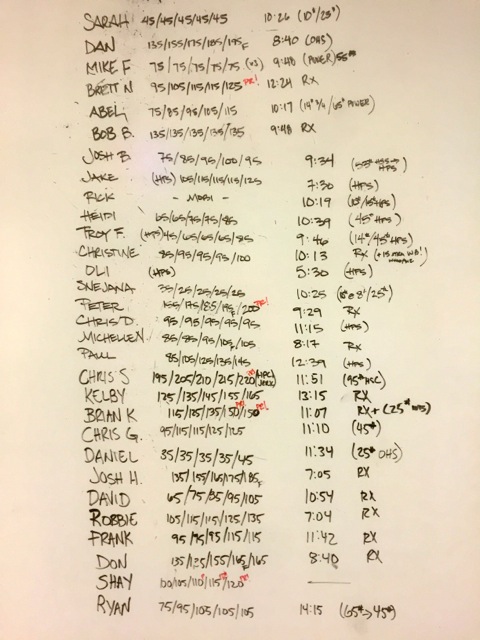 SARAH 45/45/45/45/45 10:26 (10#/25#)
DAN 135/155/175/185/195F 8:40 (OHS)
MIKE F 75/75/75/75/75 (x3) 9:48 (POWER) 55#
BRETT N 95/105/115/115/125 PR! 12:24 RX
ABEL 75/85/95/105/115 10:17 (14#/65# POWER)
BOB B. 135/135/135/135/135 9:48 RX
JOSH B 75/85/95/100/95 9:34 HPS)
JAKE (HPS) 105/115/115/115/125 7:30 (HPS)
RICK - MOBI - 10:19
HEIDI 65/65/75/75/85 10:39 (45# HPS)
TROY F. (HPS) 45/65/65/65/85 9:46 (14#/45# HPS)
CHRISTINE 85/95/95/95/100 10:13 RX (+15 WB!
OLI (HPS) 5:30 (HPS)
SNEJANA 35/25/25/25/25 10:25
PETER 155/175/185/195F/200 PR! 9:29 RX
CHRIS D. 95/95/95/95/95 11:15 (HPS)
MICHELLE N 85/85/95/105F/105 8:17 RX
PAUL 85/105/125/135/145 12:39 (HPS)
CHRIS S 195/205/210/215/220 (HPC/JERK) 11:51 (95# HSC)
KELBY 125/135/145/155/165 13:15 RX
BRIAN K 115/125/135/150/150 PR! 11:07 RX+ (25# OHS)
CHRIS G. 95/115/115/125/125 11:10 (45#)
DANIEL 35/35/35/35/45 11:34 (25# OHS)
JOSH H. 135/155/165/175/185F 7:05 RX
DAVID 65/75/85/95/105 10:54 RX
ROBBIE 105/115/115/125/135 7:04 RX
FRANK 95/95/95/115/115 11:42 RX
DON 135/135/155/165F/165 8:40 RX
SHAY 100/105/110/115/120 —
RYAN 75/95/105/105/105 14:15 (65#→45#)